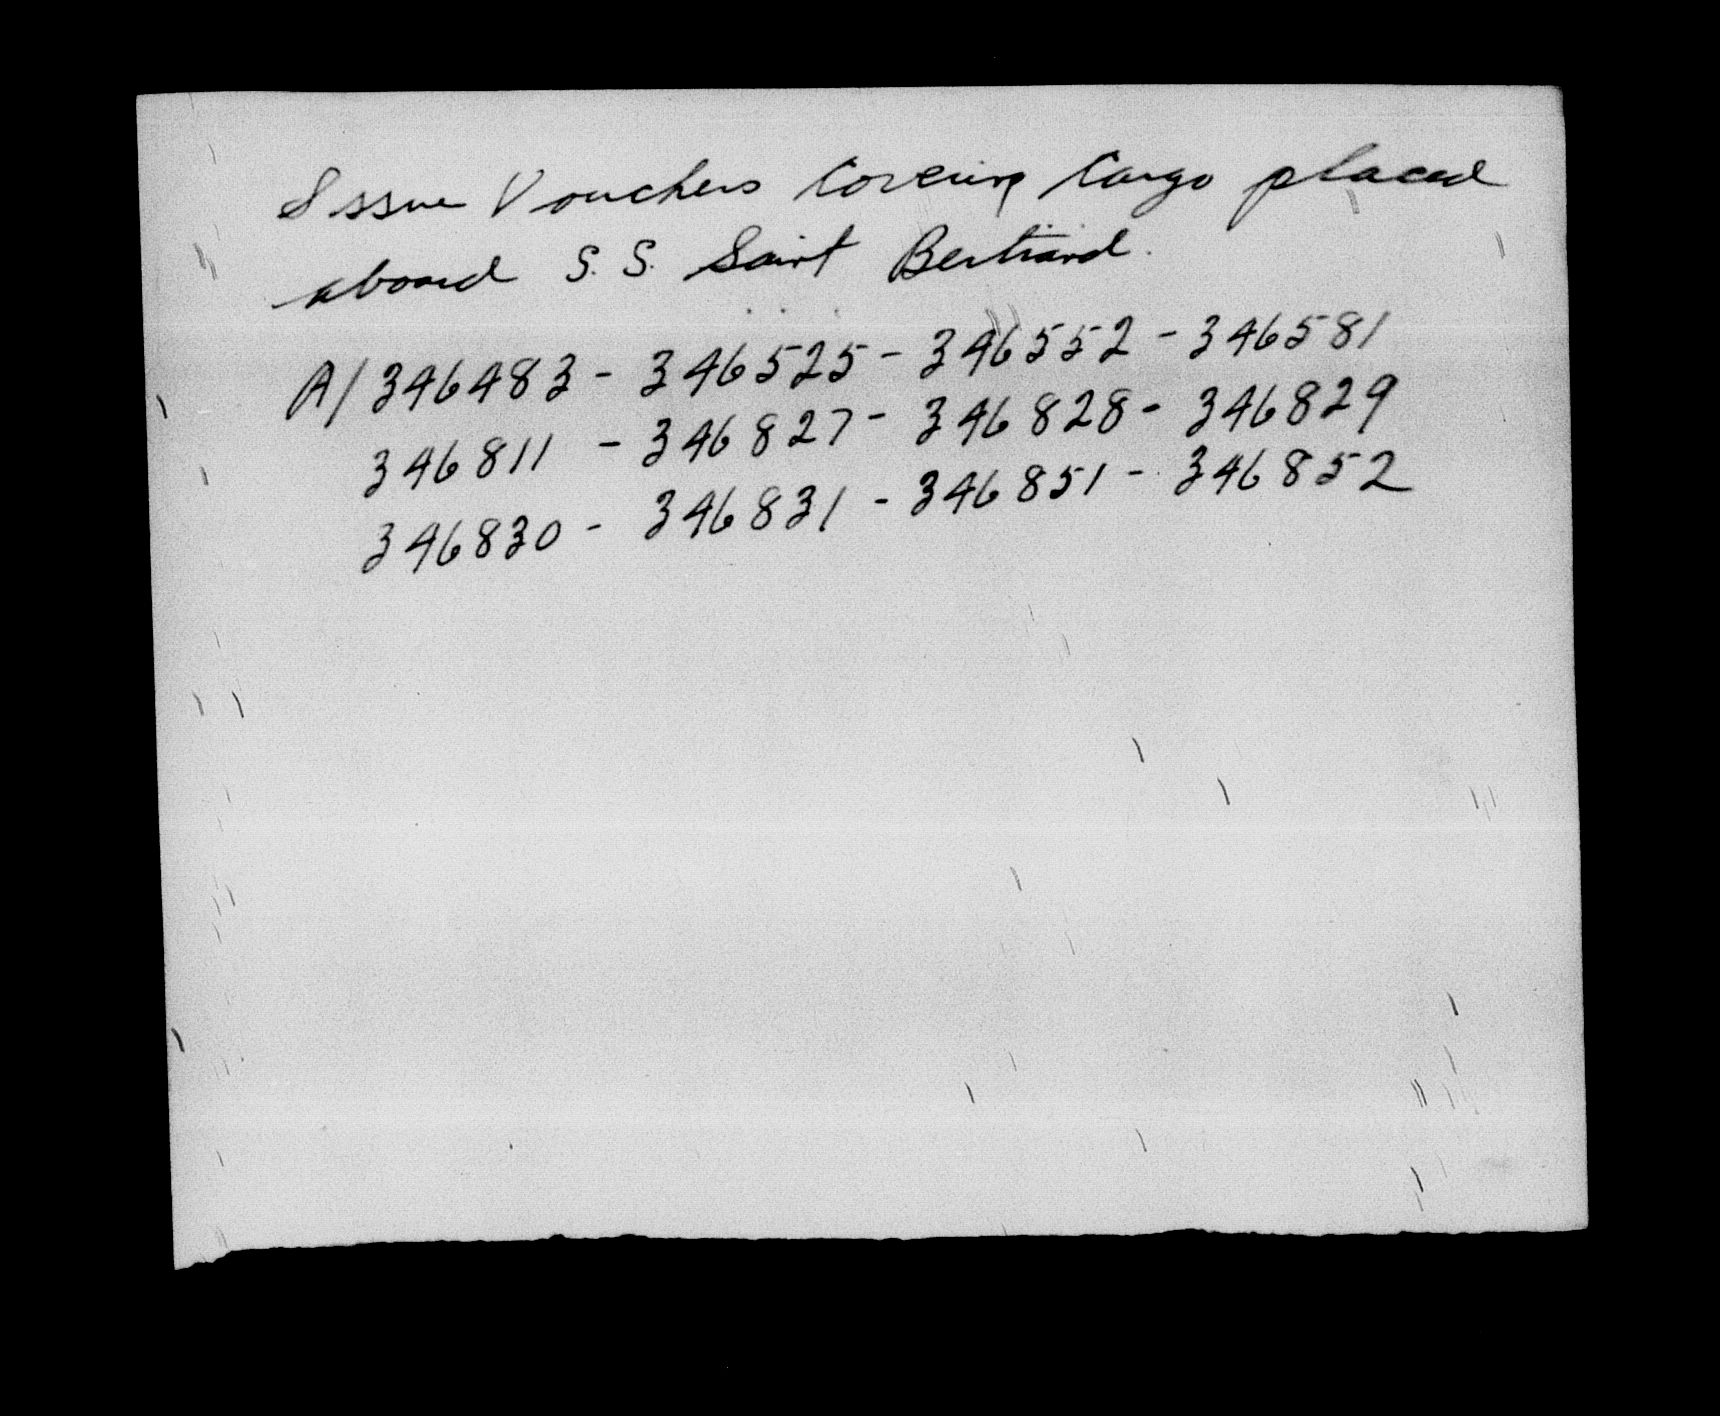 Issue Vouchers Covering Cargo placed
aboard S.S. Saint Bertrand.
A/346483 - 346525 - 346552 - 346581
346811 - 346827 - 346828 - 346829
346830 - 346831 - 346851 - 346852